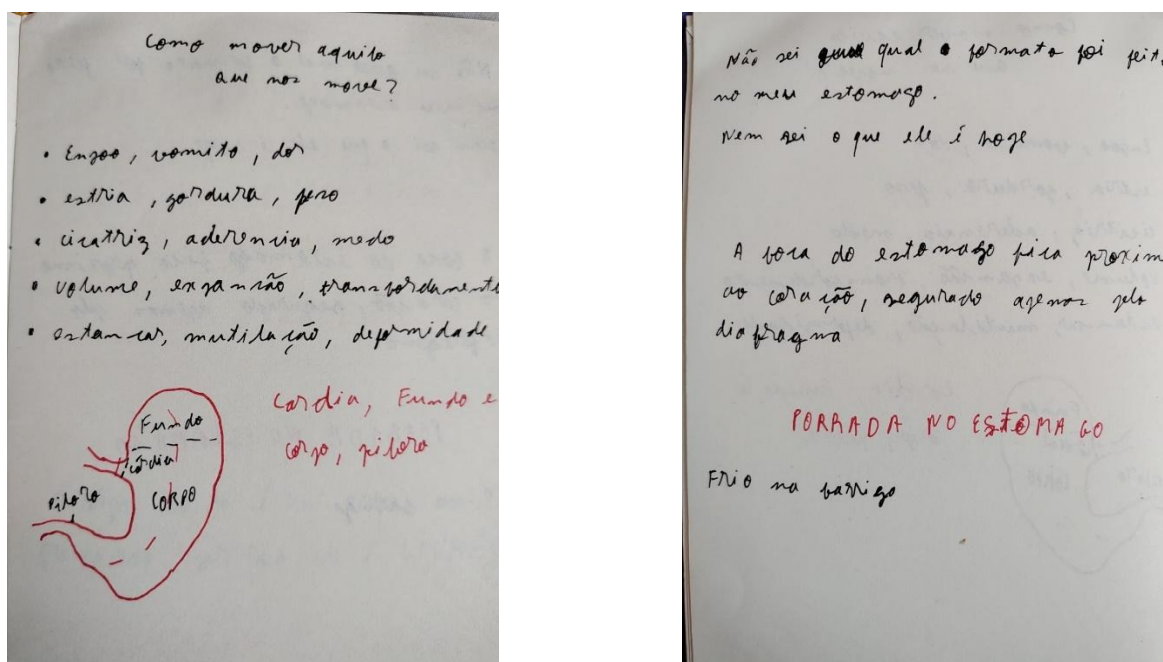 Como mover aquilo
que nos move?
• Enjoo, vomito, dor
• estria, gordura, peso
• cicatriz, aderencia, medo
• volume, expansão, transbordamento
• estancar, mutilação, deformidade
Cardia, Fundo e
corpo, piloro
Fundo
cárdia
Piloro
CORPO
Não sei qual o formato foi feit
no meu estomago.
Nem sei o que ele é hoje
A boca do estomago fica proxim
ao coração, segurado apenas pelo
diafragma
PORRADA NO ESTOMAGO
Frio na barriga